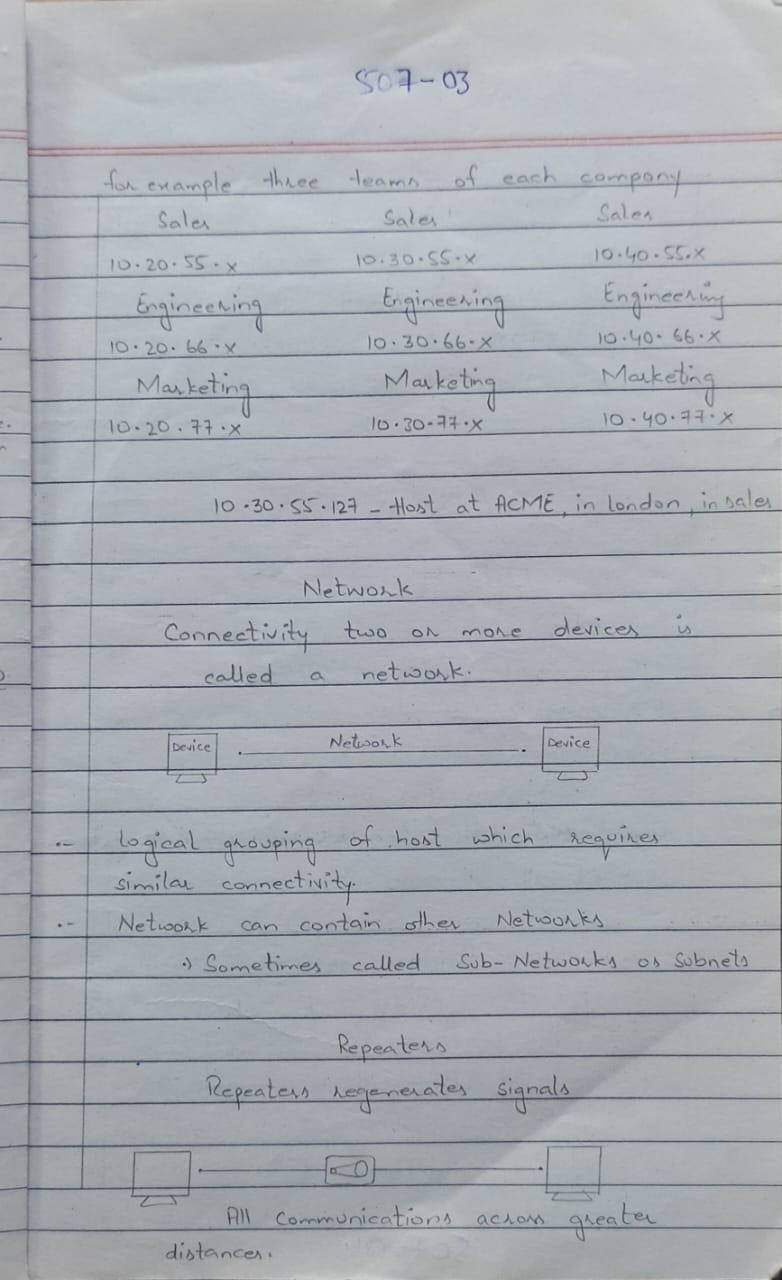 S07-03
for example three teams of each company
Sales Sales Sales
10.20.55.x 10.30.55.x 10.40.55.x
Engineering Engineering Engineering
10.20.66.x 10.30.66.x 10.40.66.x
Marketing Marketing Marketing
10.20.77.x 10.30.77.x 10.40.77.x
10.30.55.127 - Host at ACME, in london, in sales
Network
Connectivity two or more devices is
called a network.
Device Network Device
.- Logical grouping of host which requires
similar connectivity.
.- Network can contain other Networks
:) Sometimes called Sub-Networks or Subnets
Repeaters
Repeaters regenerates signals
All communications across greater
distances.